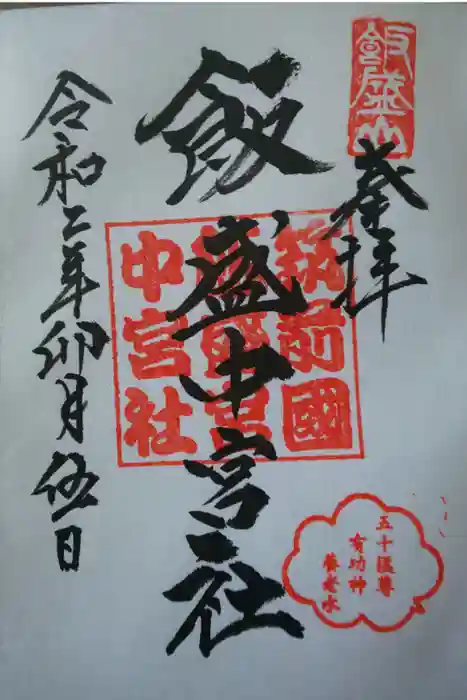 飯盛山
奉拝
飯盛中宮社
筑前國
飯盛宮
中宮社
令和二年卯月伍日
五十猛尊
有功神
養老水